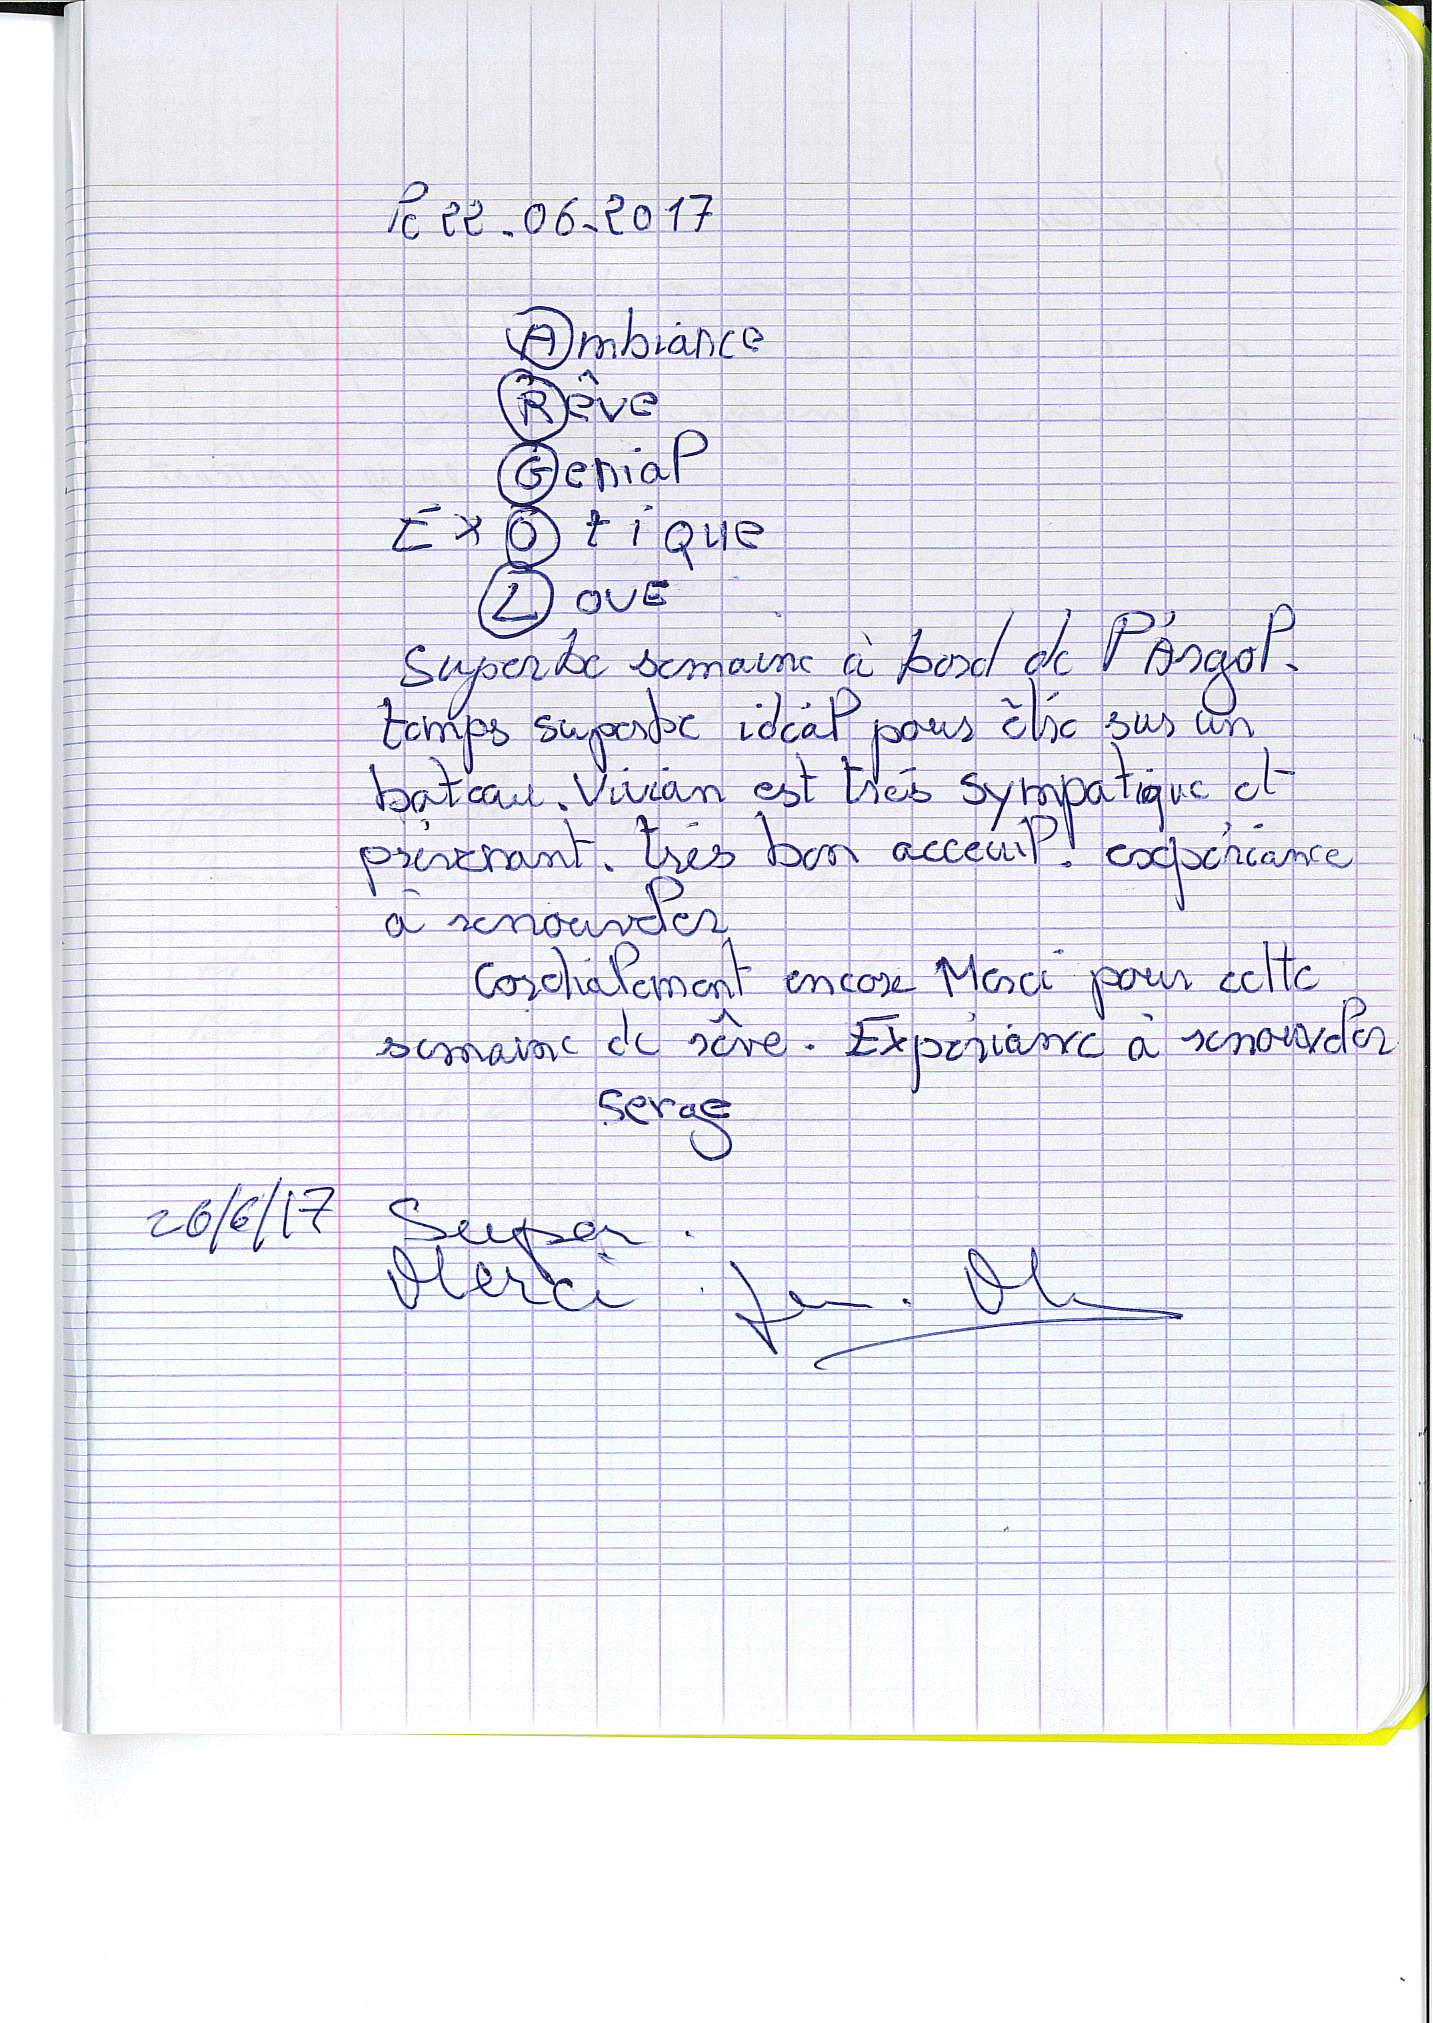 le 22.06.2017
Ambiance
Rêve
Genial
ÉxOtique
Love
Superbe semaine à bord de l'Argol.
temps superbe idéal pour être sur un
bateau. Vivian est très sympatique et
prévenant. très bon acceuil. expériance
à renouveler
Cordialement encore Merci pour cette
semaine de rêve. Expériance à renouveler
Serge
26/6/17 Super.
Merci